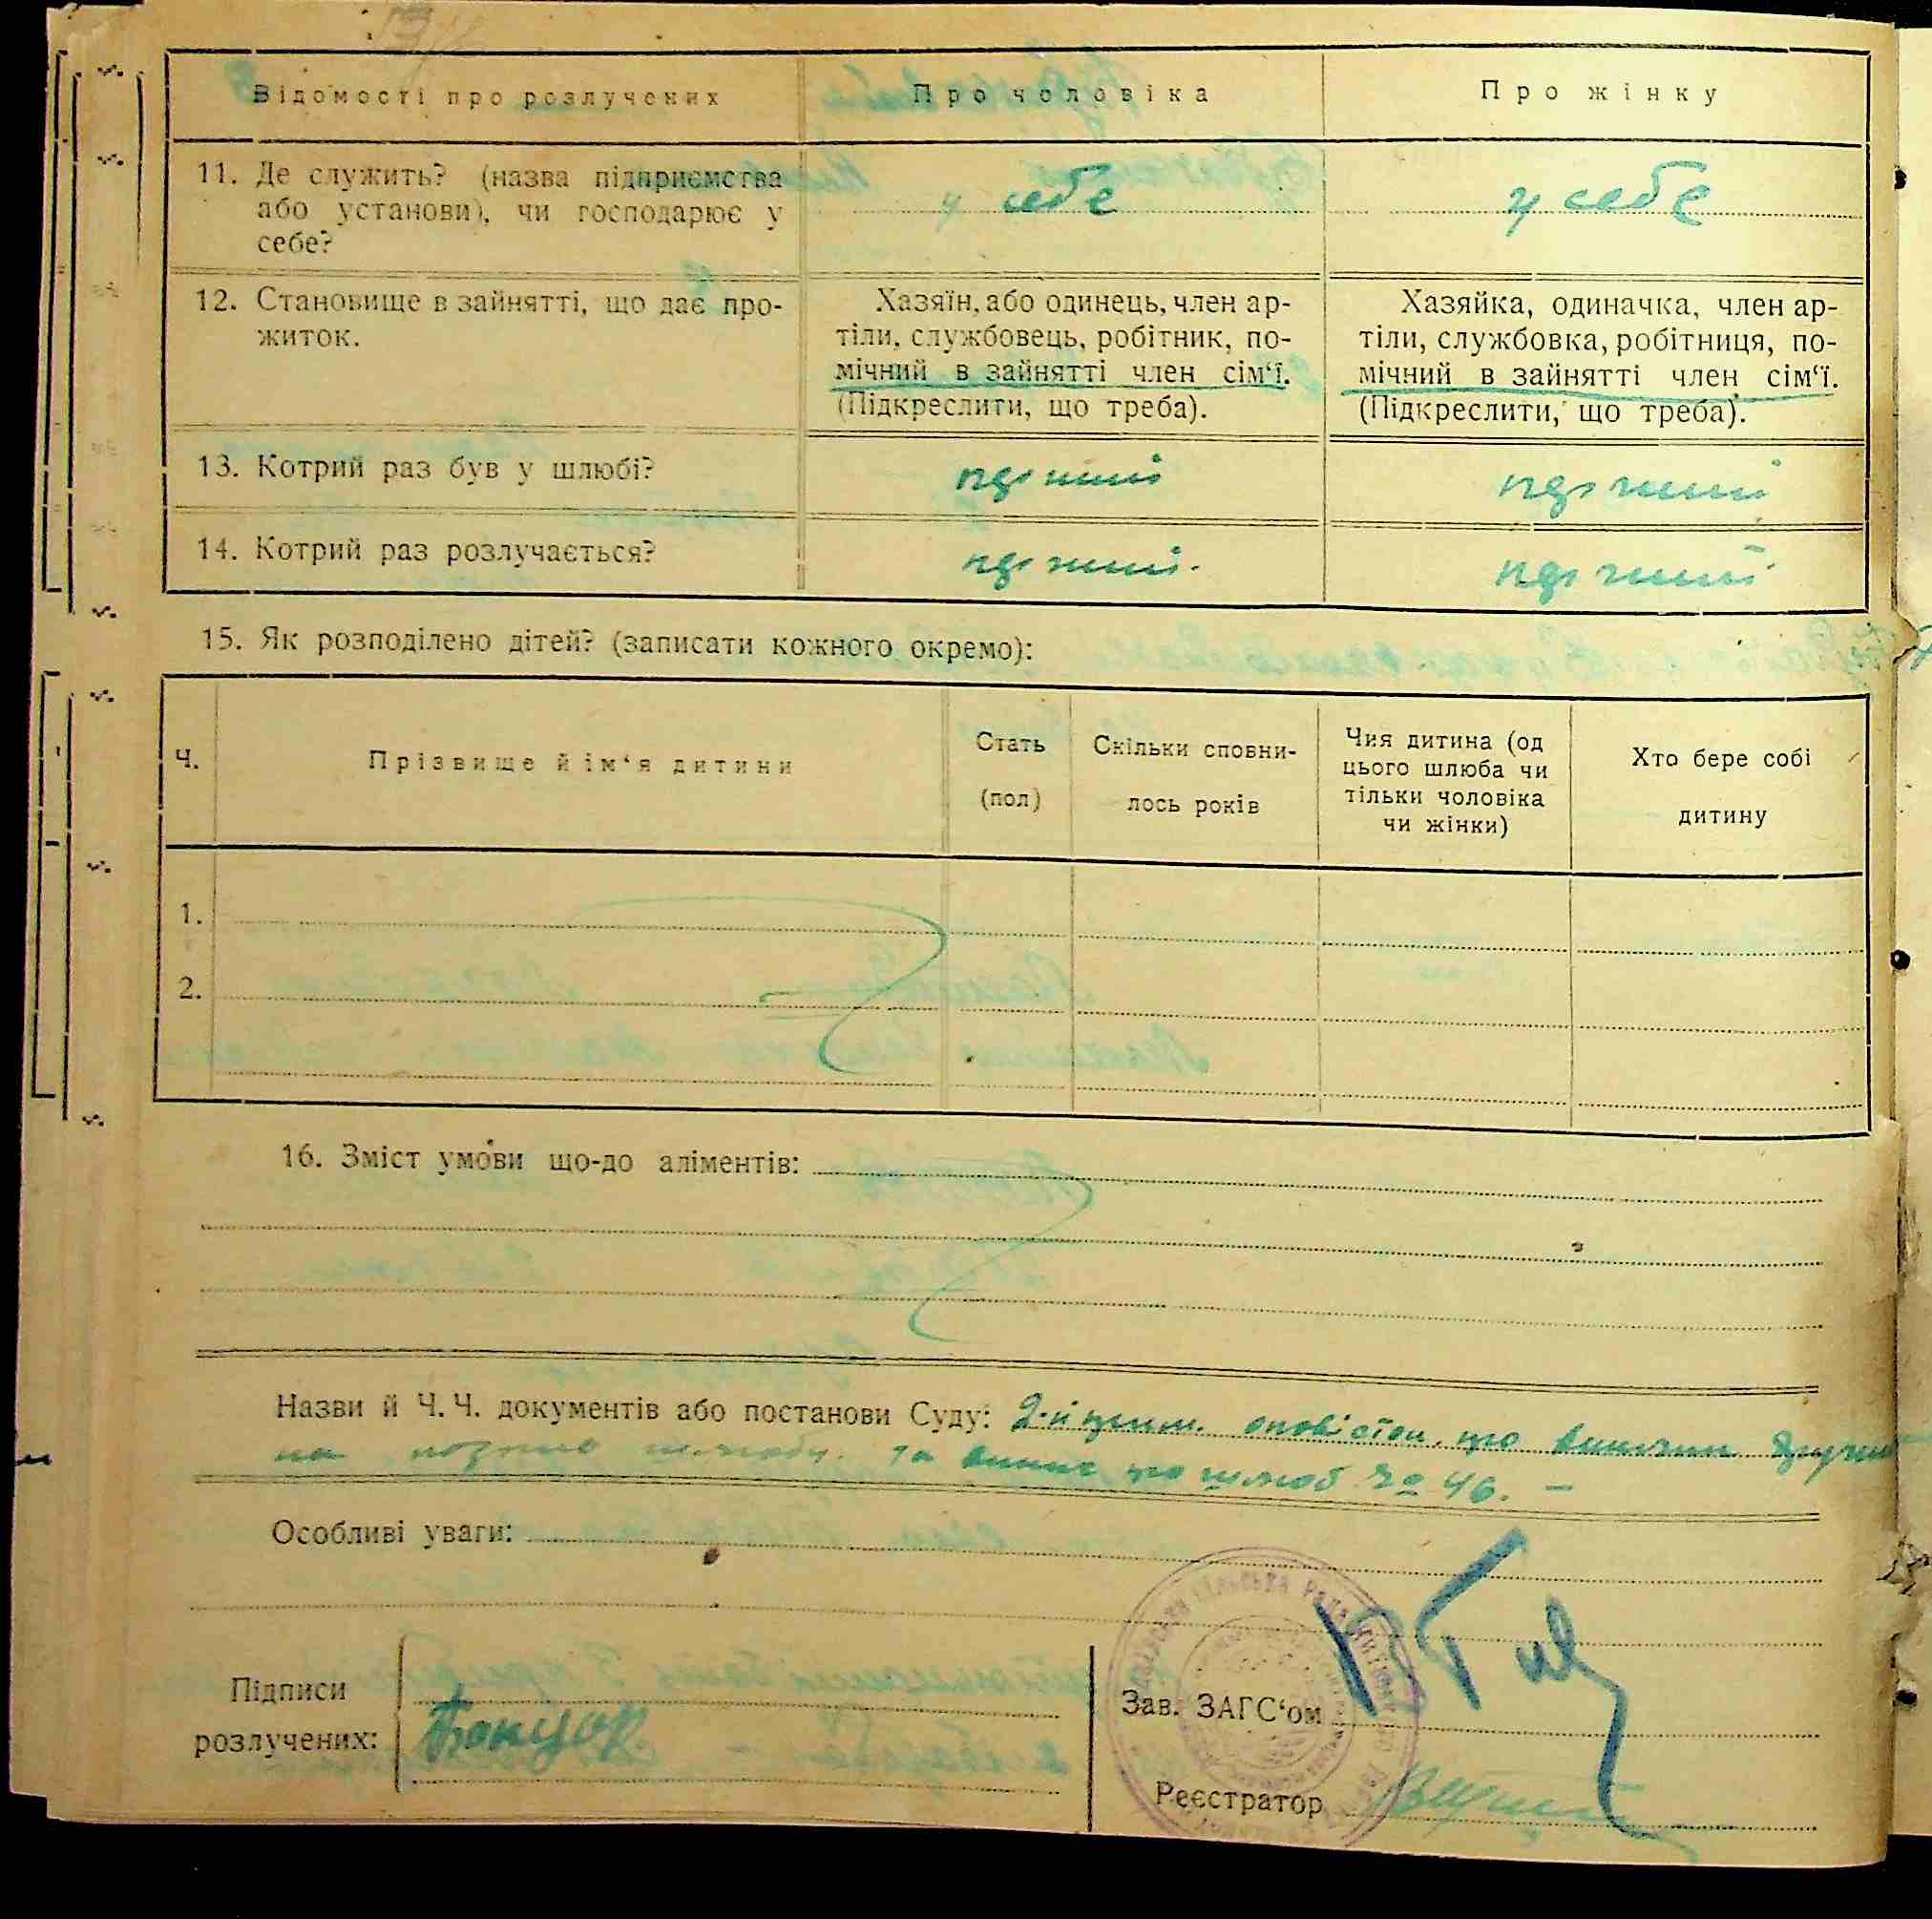 Відомості про розлучених
Про чоловіка
Про жінку
11. Де служить? (назва підприємства
або установи), чи господарює у
себе?
у себе
у себе
12. Становище в зайнятті, що дає про-
житок.
Хазяїн, або одинець, член ар-
тіли, службовець, робітник, по-
мічний в зайнятті член сім‘ї.
(Підкреслити, що треба).
Хазяйка, одиначка, член ар-
тіли, службовка, робітниця, по-
мічний в зайнятті член сім‘ї.
(Підкреслити, що треба).
13. Котрий раз був у шлюбі?
перший
перший
14. Котрий раз розлучається?
перший.
перший
15. Як розподілено дітей? (записати кожного окремо):
Ч.
Прізвище й ім‘я дитини
Стать
(пол)
Скільки сповни-
лось років
Чия дитина (од
цього шлюба чи
тільки чоловіка
чи жінки)
Хто бере собі
дитину
1.
2.
16. Зміст умови що-до аліментів:
Назви й Ч. Ч. документів або постанови Суду: 2-й
та про шлюб № 46. –
Особливі уваги:
Підписи
розлучених:
Зав. ЗАГС‘ом
Реєстратор